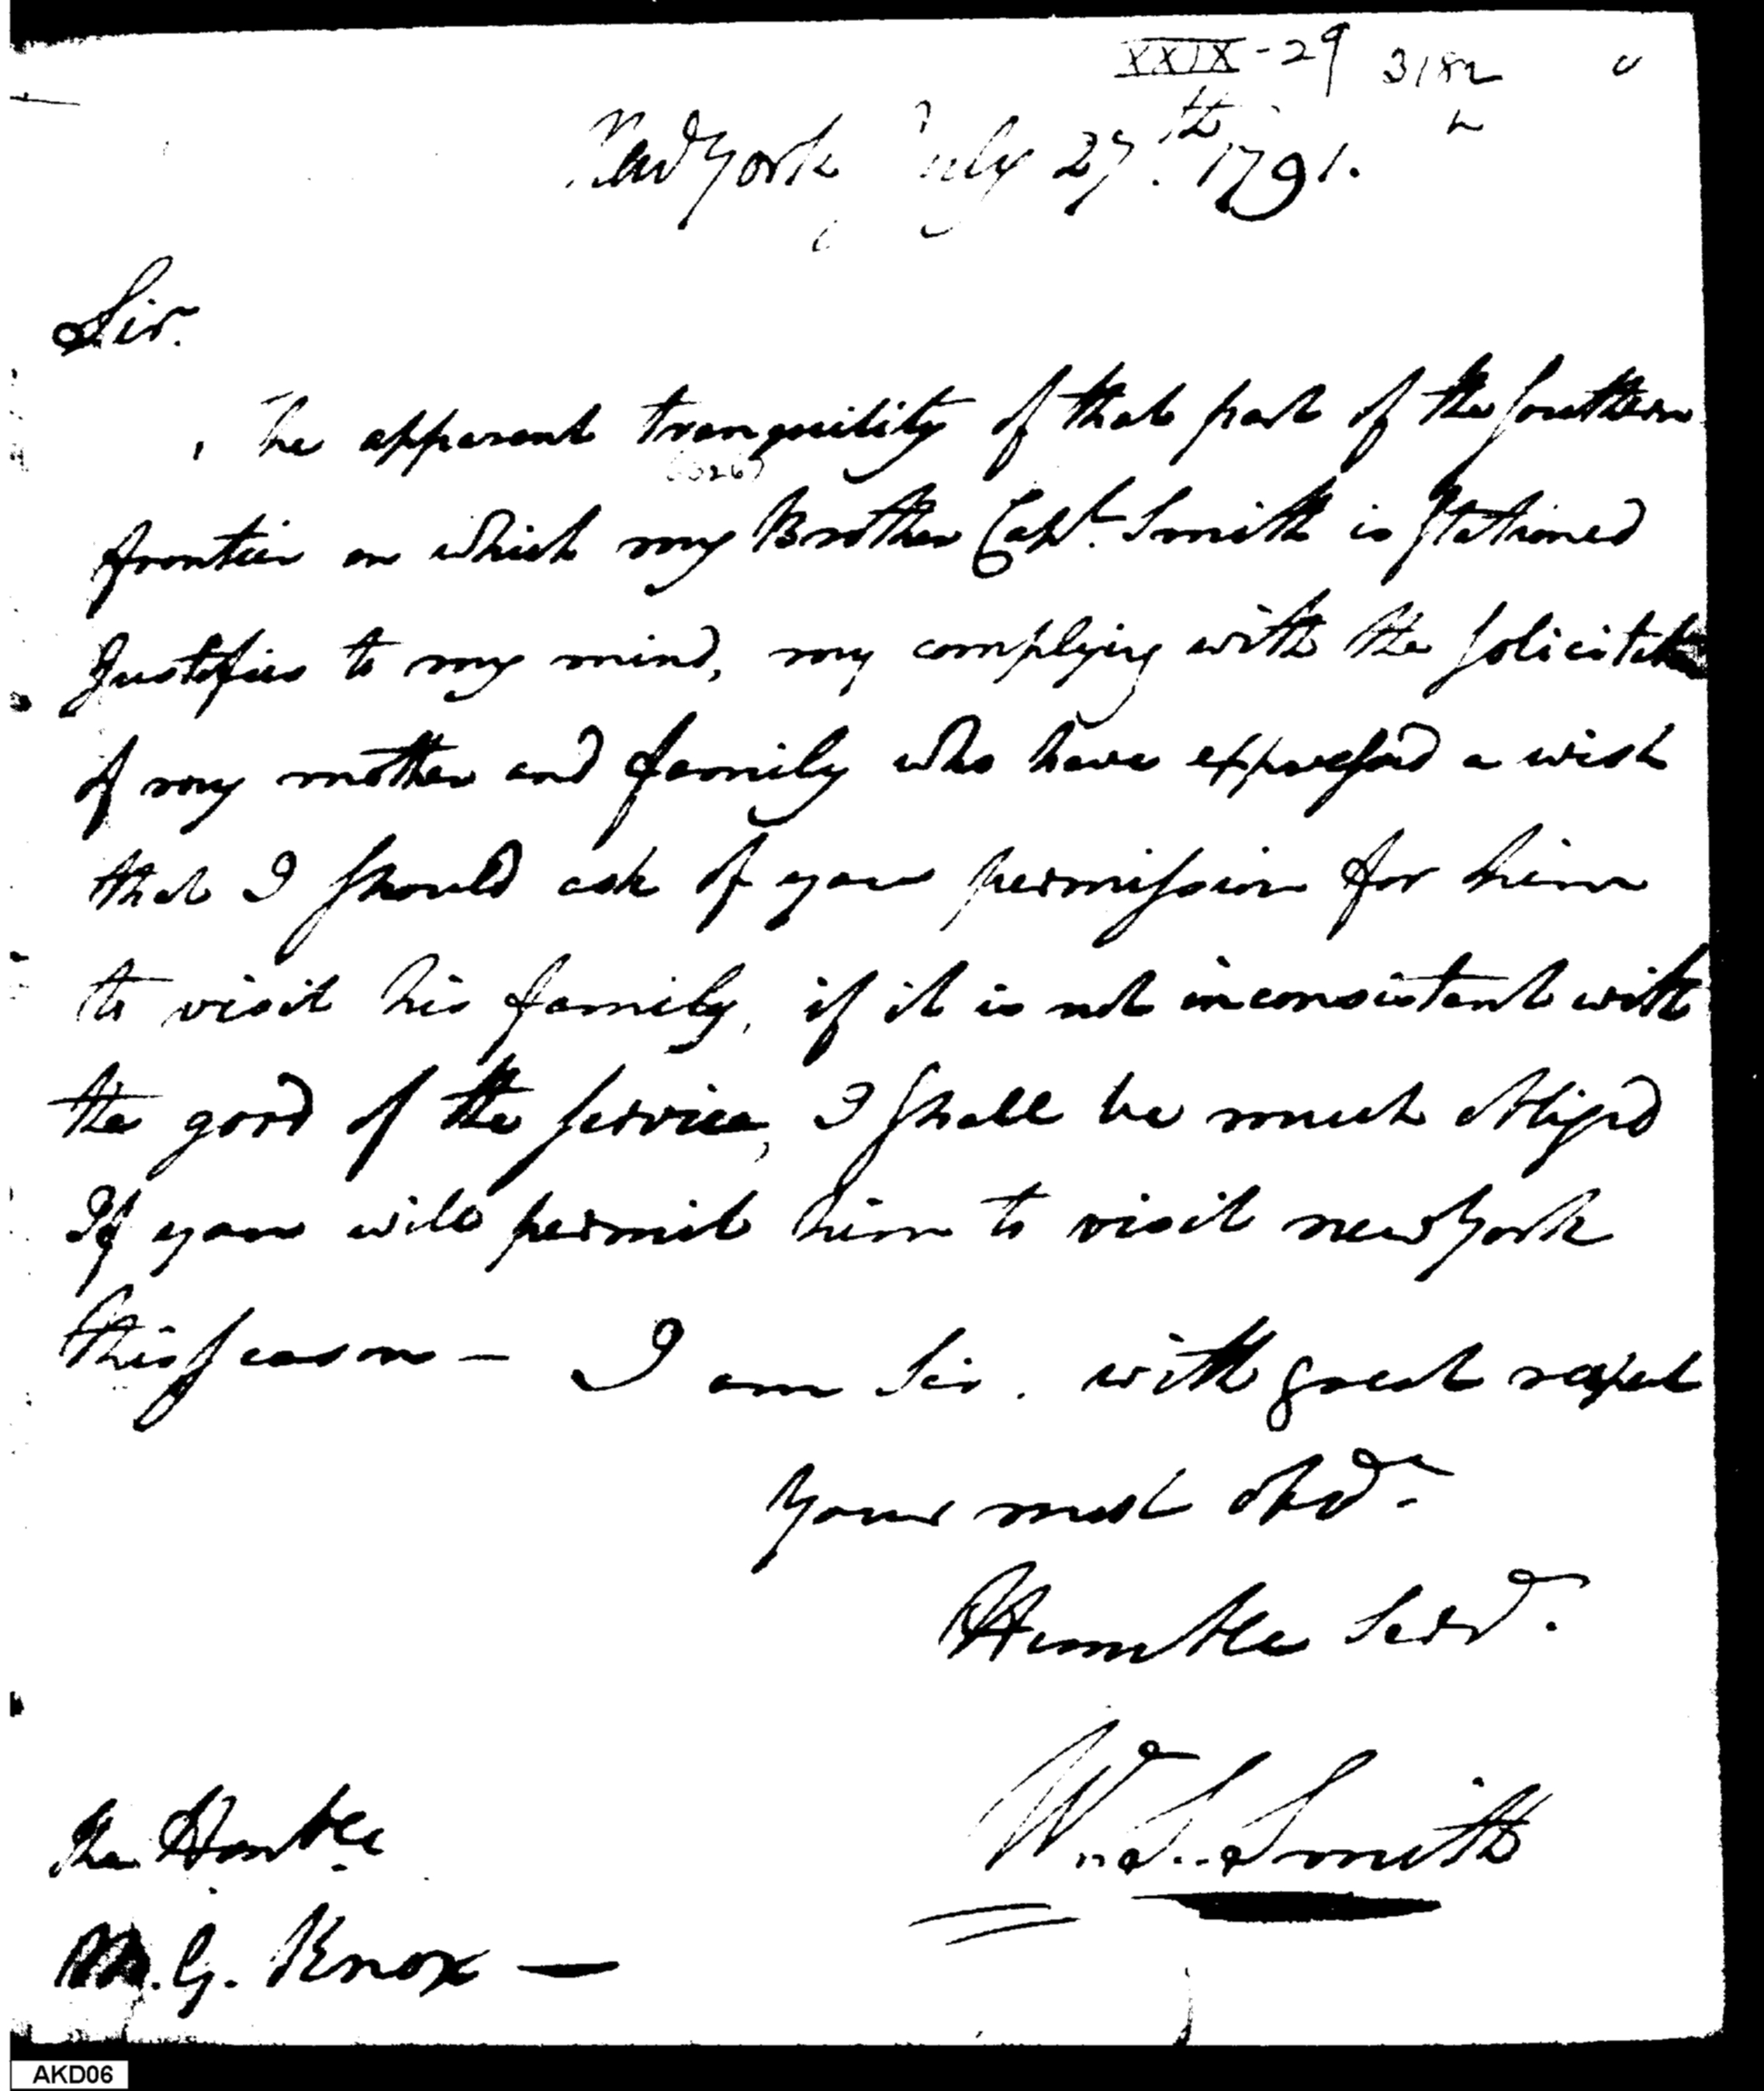 XXIX - 29 3182
New York July 27.th 1791.
Sir.
The apparent tranquility of that part of the Southern
frontier on which my Brother Capt. Smith is Stationed
Justifies to my mind, my complying with the
of my mother and family who have expressed a wish
that I should ask of you permission for him
to visit his family, if it is not inconsistent with
the good of the service, I shall be much obliged
If you will permit him to visit new York
this season — I am Sir. with great respect
Your most Obdt.
Humble Servt.
Wm. S. Smith
The Honble
M. G. Knox —
AKD06